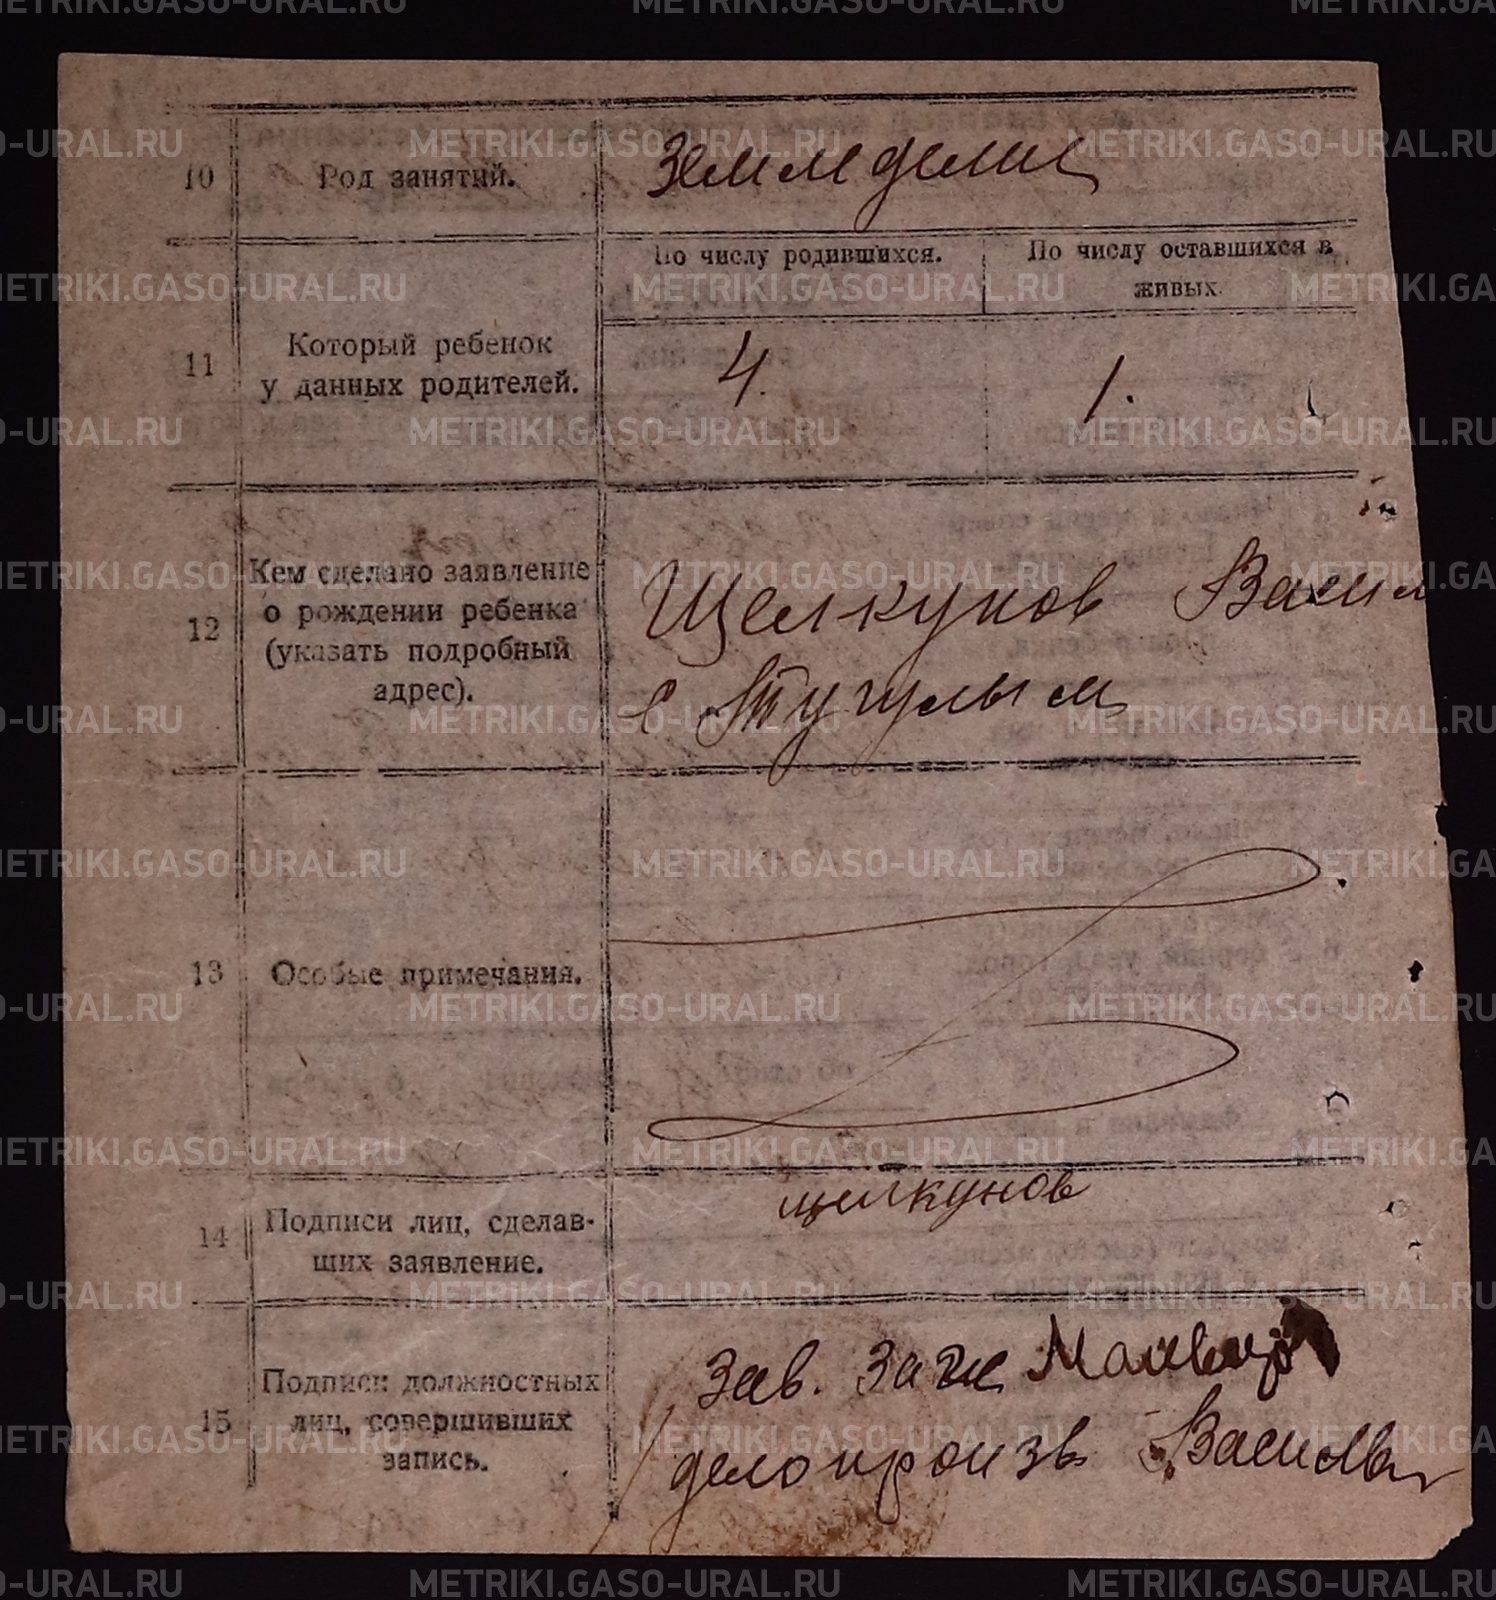 10 Род занятий. Земледелие
По числу родившихся. По числу оставшихся в
живых.
11 Который ребенок
у данных родителей. 4. 1.
12 Кем сделано заявление
о рождении ребенка
(указать подробный
адрес).
Щелкунов Васил
с Тугулым
13 Особые примечания.
14 Подписи лиц, сделав-
ших заявление.
щелкунов
15 Подписи должностных
лиц, совершивших
запись.
Зав. Загс
делопроизв
METRIKI.GASO-URAL.RU